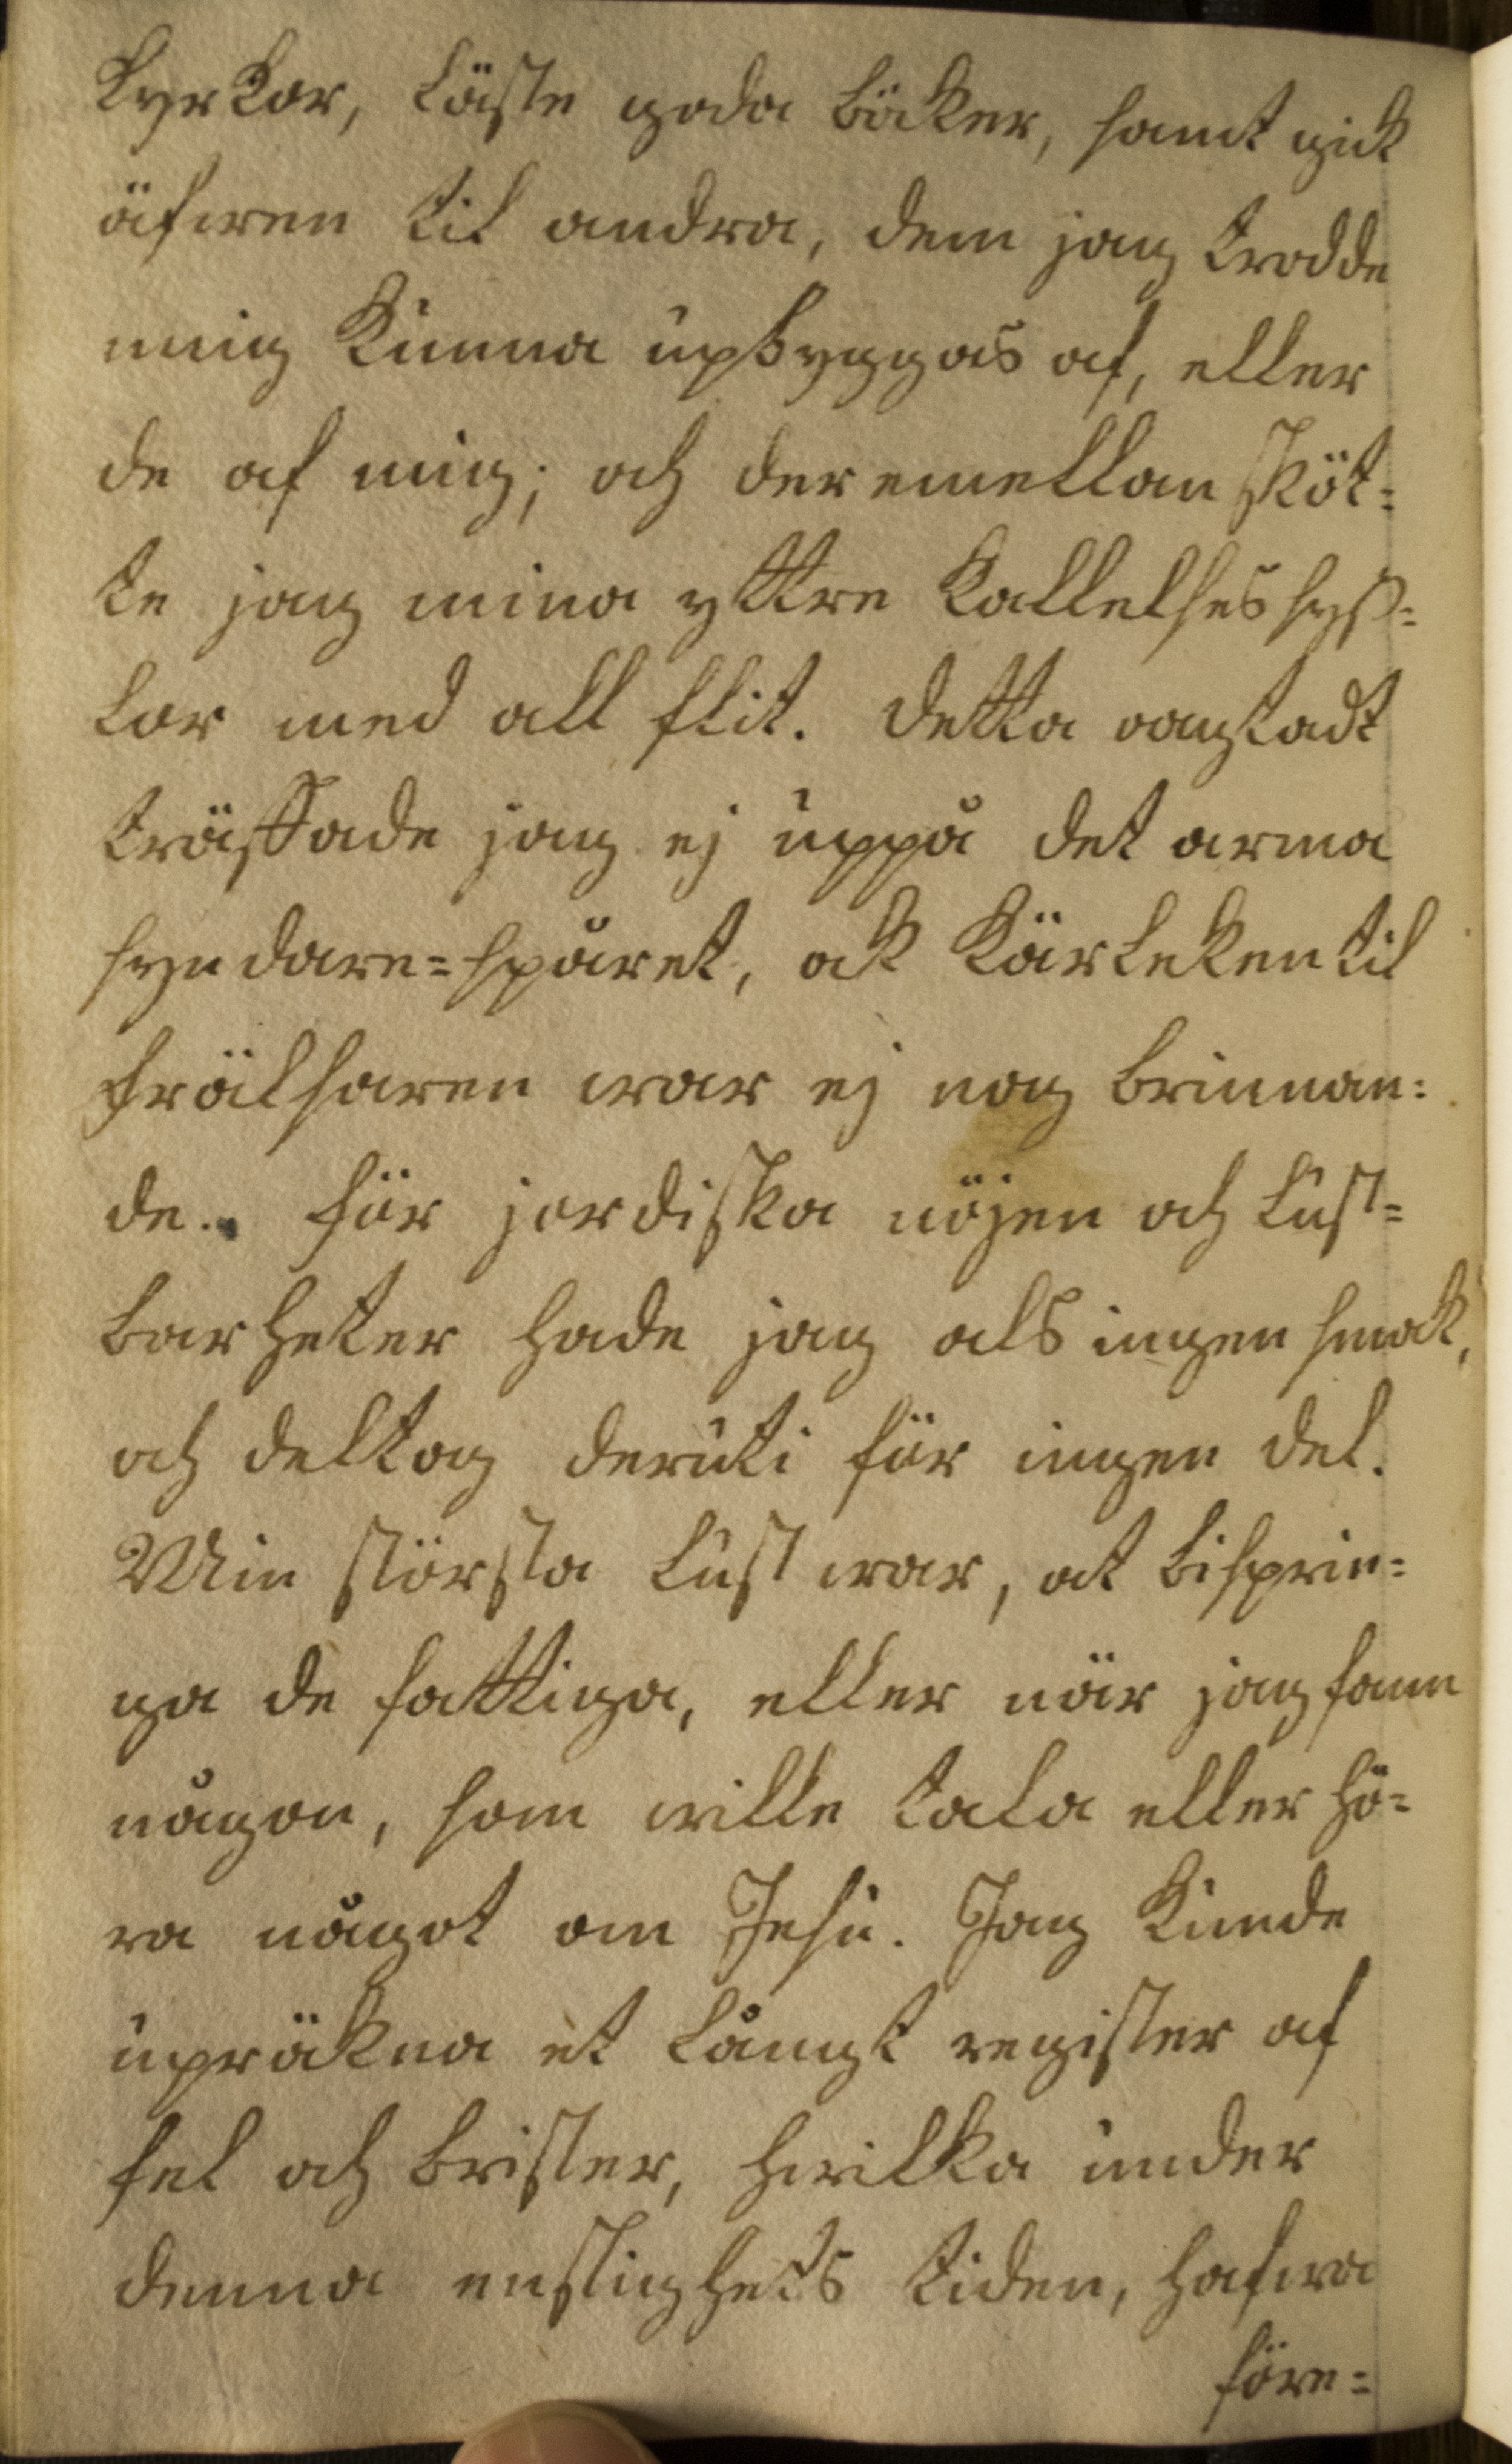 kyrkor, läste goda böcker, samt gick
äfwen til andra, dem jag trodde
mig kunna upbyggas af, eller
de af mig; och deremellan sköt=
te jag mina yttre kallelses syß=
lor med all flit. Detta oagtadt
träffade jag ej uppå det arma
syndare=spåret, ack kärleken til
Frälsaren war ej nog brinnan=
de. För jordiska nöjen och lust=
barheter hade jag als ingen smak,
och deltog deruti för ingen del.
Min största lust war, at bisprin=
ga de fattiga, eller när jag fann
någon, som wille tala eller hö=
ra något om Jesu. Jag kunde
upräkna et långt register af
fel och brister, hwilka under
denna enslighets tiden, hafwa
före=